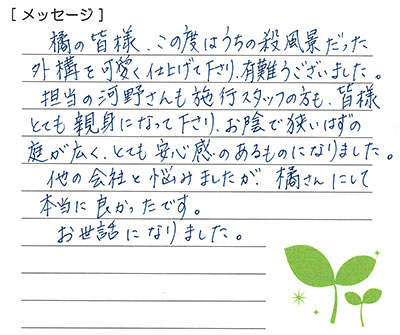 [ メッセージ ]
橘の皆様、この度はうちの殺風景だった
外構を可愛く仕上げて下さり、有難うございました。
担当の河野さんも施行スタッフの方も、皆様
とても親身になって下さり、お陰で狭いはずの
庭が広く、とても安心感のあるものになりました。
他の会社と悩みましたが、橘さんにして
本当に良かったです。
お世話になりました。